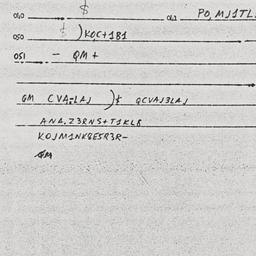 040 $ 041 PO, MJ1TL
050 $ )KQC+1B1
051 - QM +
GM CVA=LAJ )$ QCVAJ3LAJ
AN4.Z3RNS+T1KLB
KOJM1NKGE5R3R-
GM